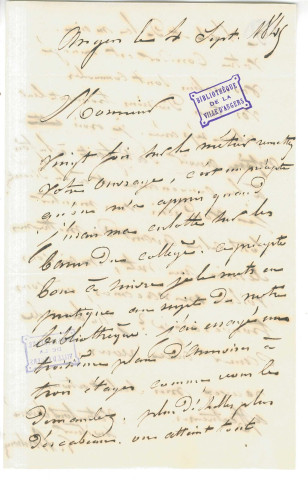 Angers le 4 Sept. 1845
BIBLIOTHÈQUE
DE LA
VILLE D'ANGERS
Monsieur
Vingt fois sur le métier remettez
votre ouvrage, c'est un précepte
qu'on m'a appris quand
j'usais ma culotte sur les
bancs du collège. ce précepte
bon à suivre je le mets en
pratique au sujet de notre
bibliothèque. j'ai essayé un
troisième plan d'armoires à
trois étages comme vous le
demandez. plus d'échelles plus
d'escabeaux. on atteint tout